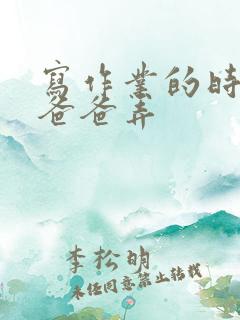 寫作業的時
爸爸弄
李松明
未经同意禁止转载